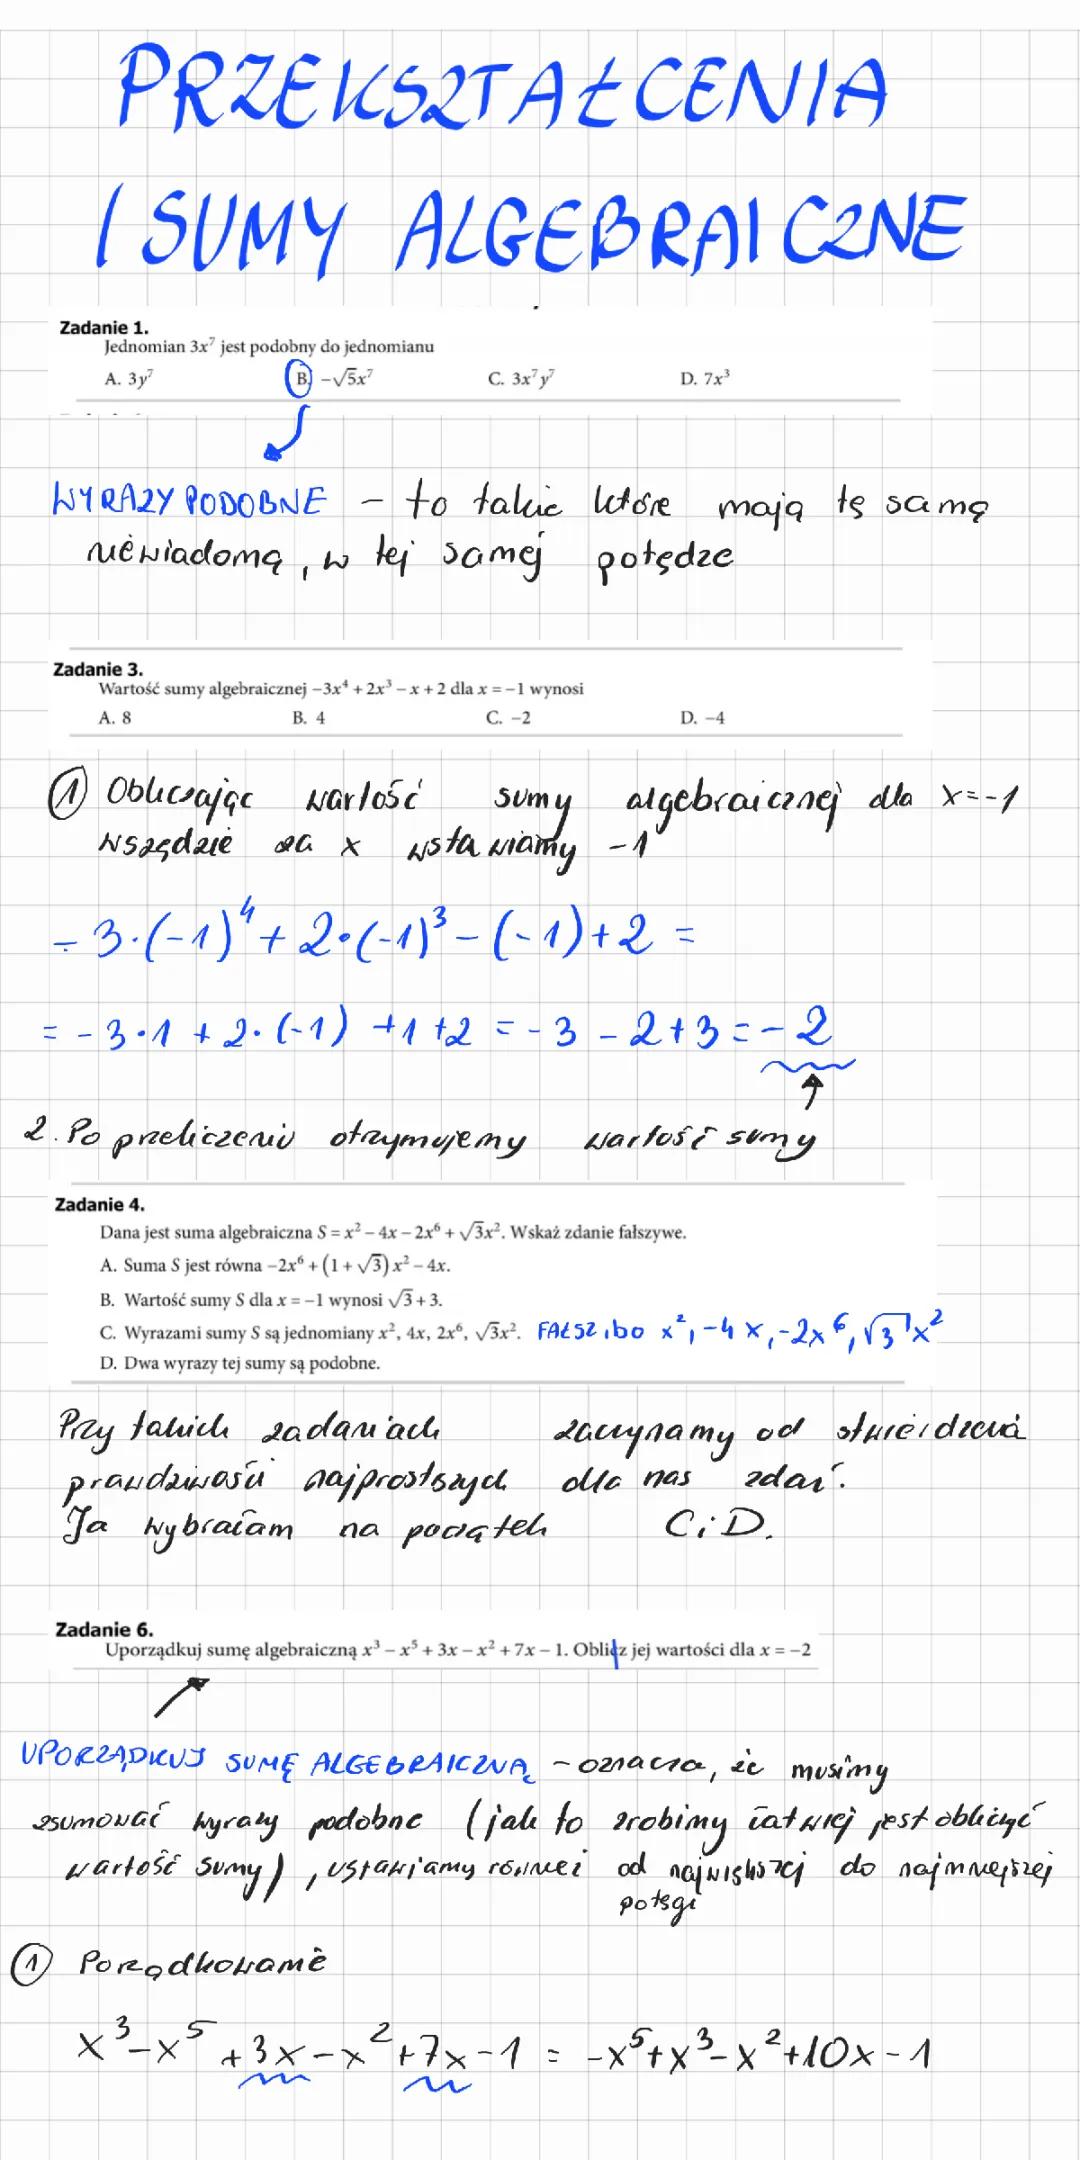 PRZEKSZTAŁCENIA
I SUMY ALGEBRAICZNE
Zadanie 1.
Jednomian 3x⁷ jest podobny do jednomianu
A. 3y⁷ B. −√5x⁷ C. 3x⁷y⁷ D. 7x³
WYRAZY PODOBNE – to takie które mają tę samą
niewiadomą, w tej samej potędze
Zadanie 3.
Wartość sumy algebraicznej −3x⁴ + 2x³ − x + 2 dla x = −1 wynosi
A. 8 B. 4 C. −2 D. −4
① Obliczając wartość sumy algebraicznej dla x=-1
wszędzie za x wstawiamy -1
-3·(-1)⁴+2·(-1)³-(-1)+2 =
= -3·1 + 2·(-1) +1+2 = -3 -2+3 = -2
2. Po przeliczeniu otrzymujemy wartość sumy
Zadanie 4.
Dana jest suma algebraiczna S = x² − 4x − 2x⁶ + √3x². Wskaż zdanie fałszywe.
A. Suma S jest równa −2x⁶ + (1 + √3) x² − 4x.
B. Wartość sumy S dla x = −1 wynosi √3 + 3.
C. Wyrazami sumy S są jednomiany x², 4x, 2x⁶, √3x². FAŁSZ, bo x², -4x, -2x⁶, √3x²
D. Dwa wyrazy tej sumy są podobne.
Przy takich zadaniach zaczynamy od stwierdzenia
prawdziwości najprostszych dla nas zdań.
Ja wybrałam na początek C i D.
Zadanie 6.
Uporządkuj sumę algebraiczną x³ − x⁵ + 3x − x² + 7x − 1. Oblicz jej wartości dla x = −2
UPORZĄDKUJ SUMĘ ALGEBRAICZNĄ – oznacza, że musimy
zsumować wyrazy podobne (jak to zrobimy łatwiej jest obliczyć
wartość sumy), ustawiamy również od największej do najmniejszej
potęgi
① Porządkowanie
x³-x⁵+3x-x²+7x-1 = -x⁵+x³-x²+10x-1